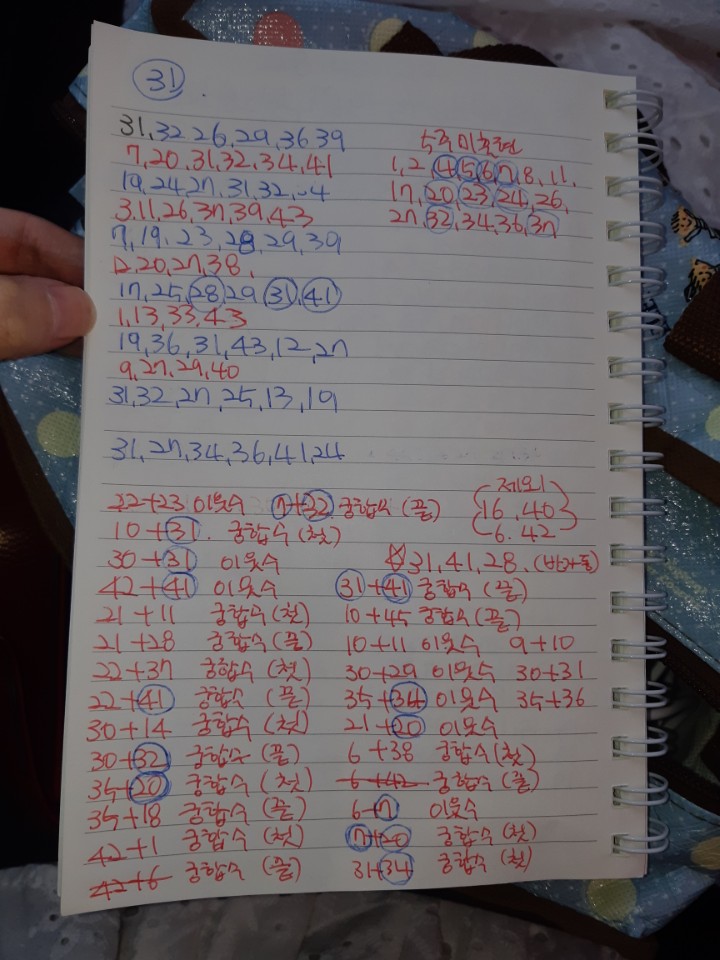 31
31, 32 26, 29, 36 39
7, 20, 31, 32, 34, 41
19, 24, 27, 31, 32, 4
3, 11, 26, 37, 39, 43
7, 19, 23, 28, 29, 39
12, 20, 27, 38,
17, 25, 28, 29 31, 41
1, 13, 33, 43
19, 36, 31, 43, 12, 27
9, 27, 29, 40
31, 32, 27, 25, 13, 19
31, 27, 34, 36, 41, 24
5주 미출현
1, 2, 4, 5, 6, 7, 8, 11,
17, 20, 23, 24, 26,
27, 32, 34, 36, 37
22+23 이웃수 7+32 궁합수 (끝)
제외
16, 40
6, 42
10+31. 궁합수 (첫)
30+31 이웃수
☆31, 41, 28.
42+41 이웃수 31+41 궁합수 (끝)
21+11 궁합수 (첫) 10+45 궁합수 (끝)
21+28 궁합수 (끝) 10+11 이웃수 9+10
22+37 궁합수 (첫) 30+29 이웃수 30+31
22+41 궁합수 (끝) 35+34 이웃수 35+36
30+14 궁합수 (첫) 21+20 이웃수
30+32 궁합수 (끝) 6+38 궁합수 (첫)
35+20 궁합수 (첫) 6+42 궁합수 (끝)
35+18 궁합수 (끝) 6-7 이웃수
42+1 궁합수 (첫) 7+20 궁합수 (첫)
42+6 궁합수 (끝) 31+34 궁합수 (첫)